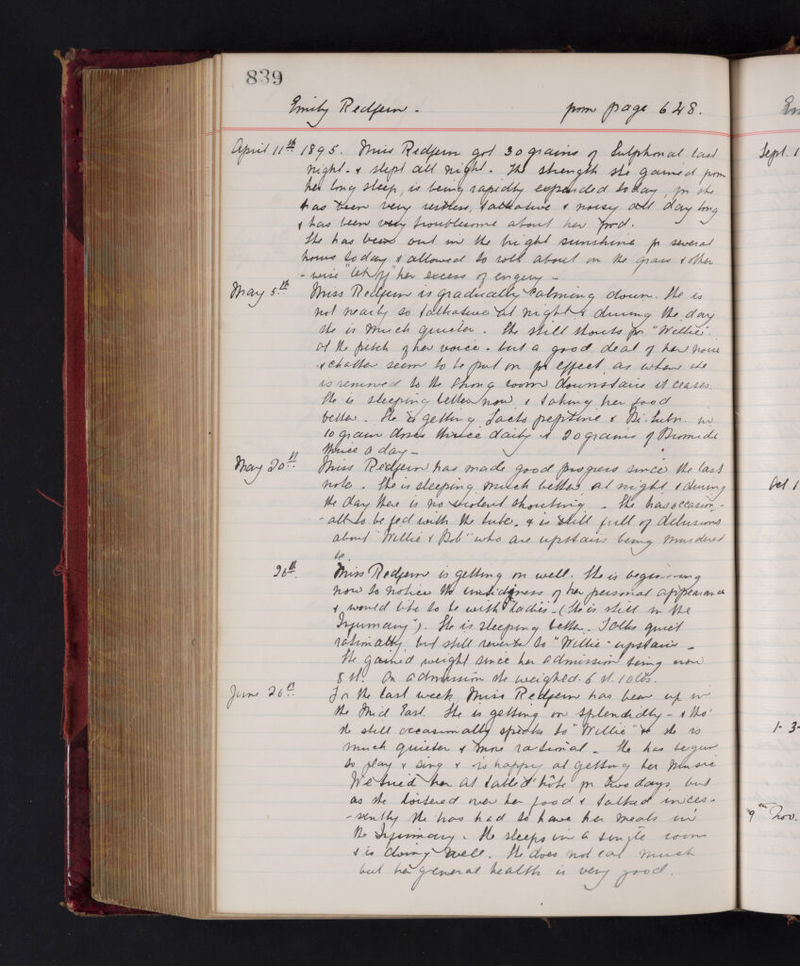 839
Emily Redfern - from page 628.
April 11th 1895. Miss Redfern got 30 grains of Sulphonal last
night - & slept all night. The strength she gained from
her long sleep, is being rapidly expended today, for she
has been very restless, talkative & noisy all day long
& has been very troublesome about her food.
She has been out in the bright sunshine for several
hours today & allowed to roll about on the grass & other
- wise "let off" her excess of energy -
May 5th Miss Redfern is gradually calming down. She is
not nearly so talkative at night & during the day
she is much quieter. She still shouts for "Willie"
at the pitch of her voice - but a good deal of her noise
& chatter seem to be put on for effect, as when she
is removed to the strong room downstairs it ceases.
She is sleeping better now & taking her food
better. She is getting Lacto peptine & Bi. Subn. in
10 grain doses thrice daily & 20 grains of Bromide
thrice a day -
May 20th Miss Redfern has made good progress since the last
note. She is sleeping much better at night & during
the day there is no violent shouting - She has occasion -
- ally to be fed with the tube, & is still full of delusions
about "Willie & Bob" who are upstairs being murdered
26th Miss Redfern is getting on well. She is beginning
now to notice the untidiness of her personal appearance
& would like to be with "ladies - (She is still in the
Infirmary"). She is sleeping better - Talks quiet
rationally but still reverts to "Willie" upstairs -
She gained weight since her admission being now
8 st. On admission she weighed 6 st. 10 lbs.
June 26th For the last week Miss Redfern has been up in
the Mid East. She is getting on splendidly - & tho'
she still occasionally speaks to "Willie" she is
much quieter & more rational - She has begun
to play & sing & is happy at getting her music
We tried her at table d'hôte for two days, but
as she loitered over her food & talked inces -
- santly she has had to have her meals in
the Infirmary. She sleeps in a single room
& is doing well. She does not eat much
but her general health is very good.
Sept. 1
Oct 1
1. 3-
9th Nov.